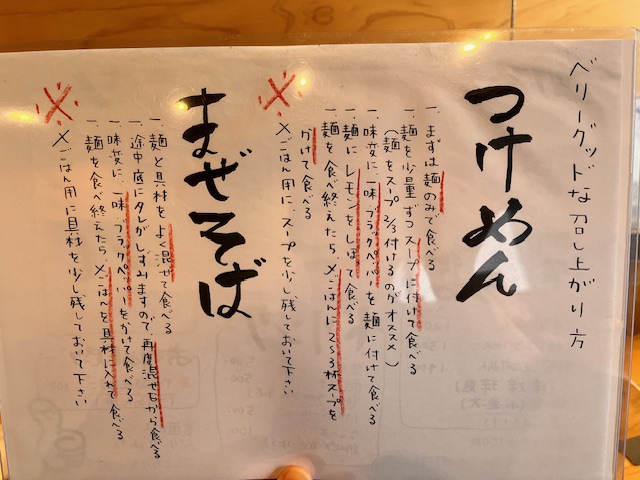 ベリーグッドな召し上がり方
つけめん
一、まずは麺のみで食べる
一、麺を少量ずつスープに付けて食べる
(麺をスープ2/3付けるのがオススメ)
一、味変に、一味、ブラックペッパーを麺に付けて食べる
一、麺にレモンをしぼり食べる
一、麺を食べ終えたら、〆ごはんに2~3杯スープを
かけて食べる
※〆ごはん用に、スープを少し残しておいて下さい
まぜそば
一、麺と具材をよく混ぜて食べる
一、途中底にタレがしずみますので、再度混ぜながら食べる
一、味変に、一味、ブラックペッパーをかけて食べる
一、麺を食べ終えたら、〆ごはんを具材に入れて食べる
※〆ごはん用に具材を少し残しておいて下さい